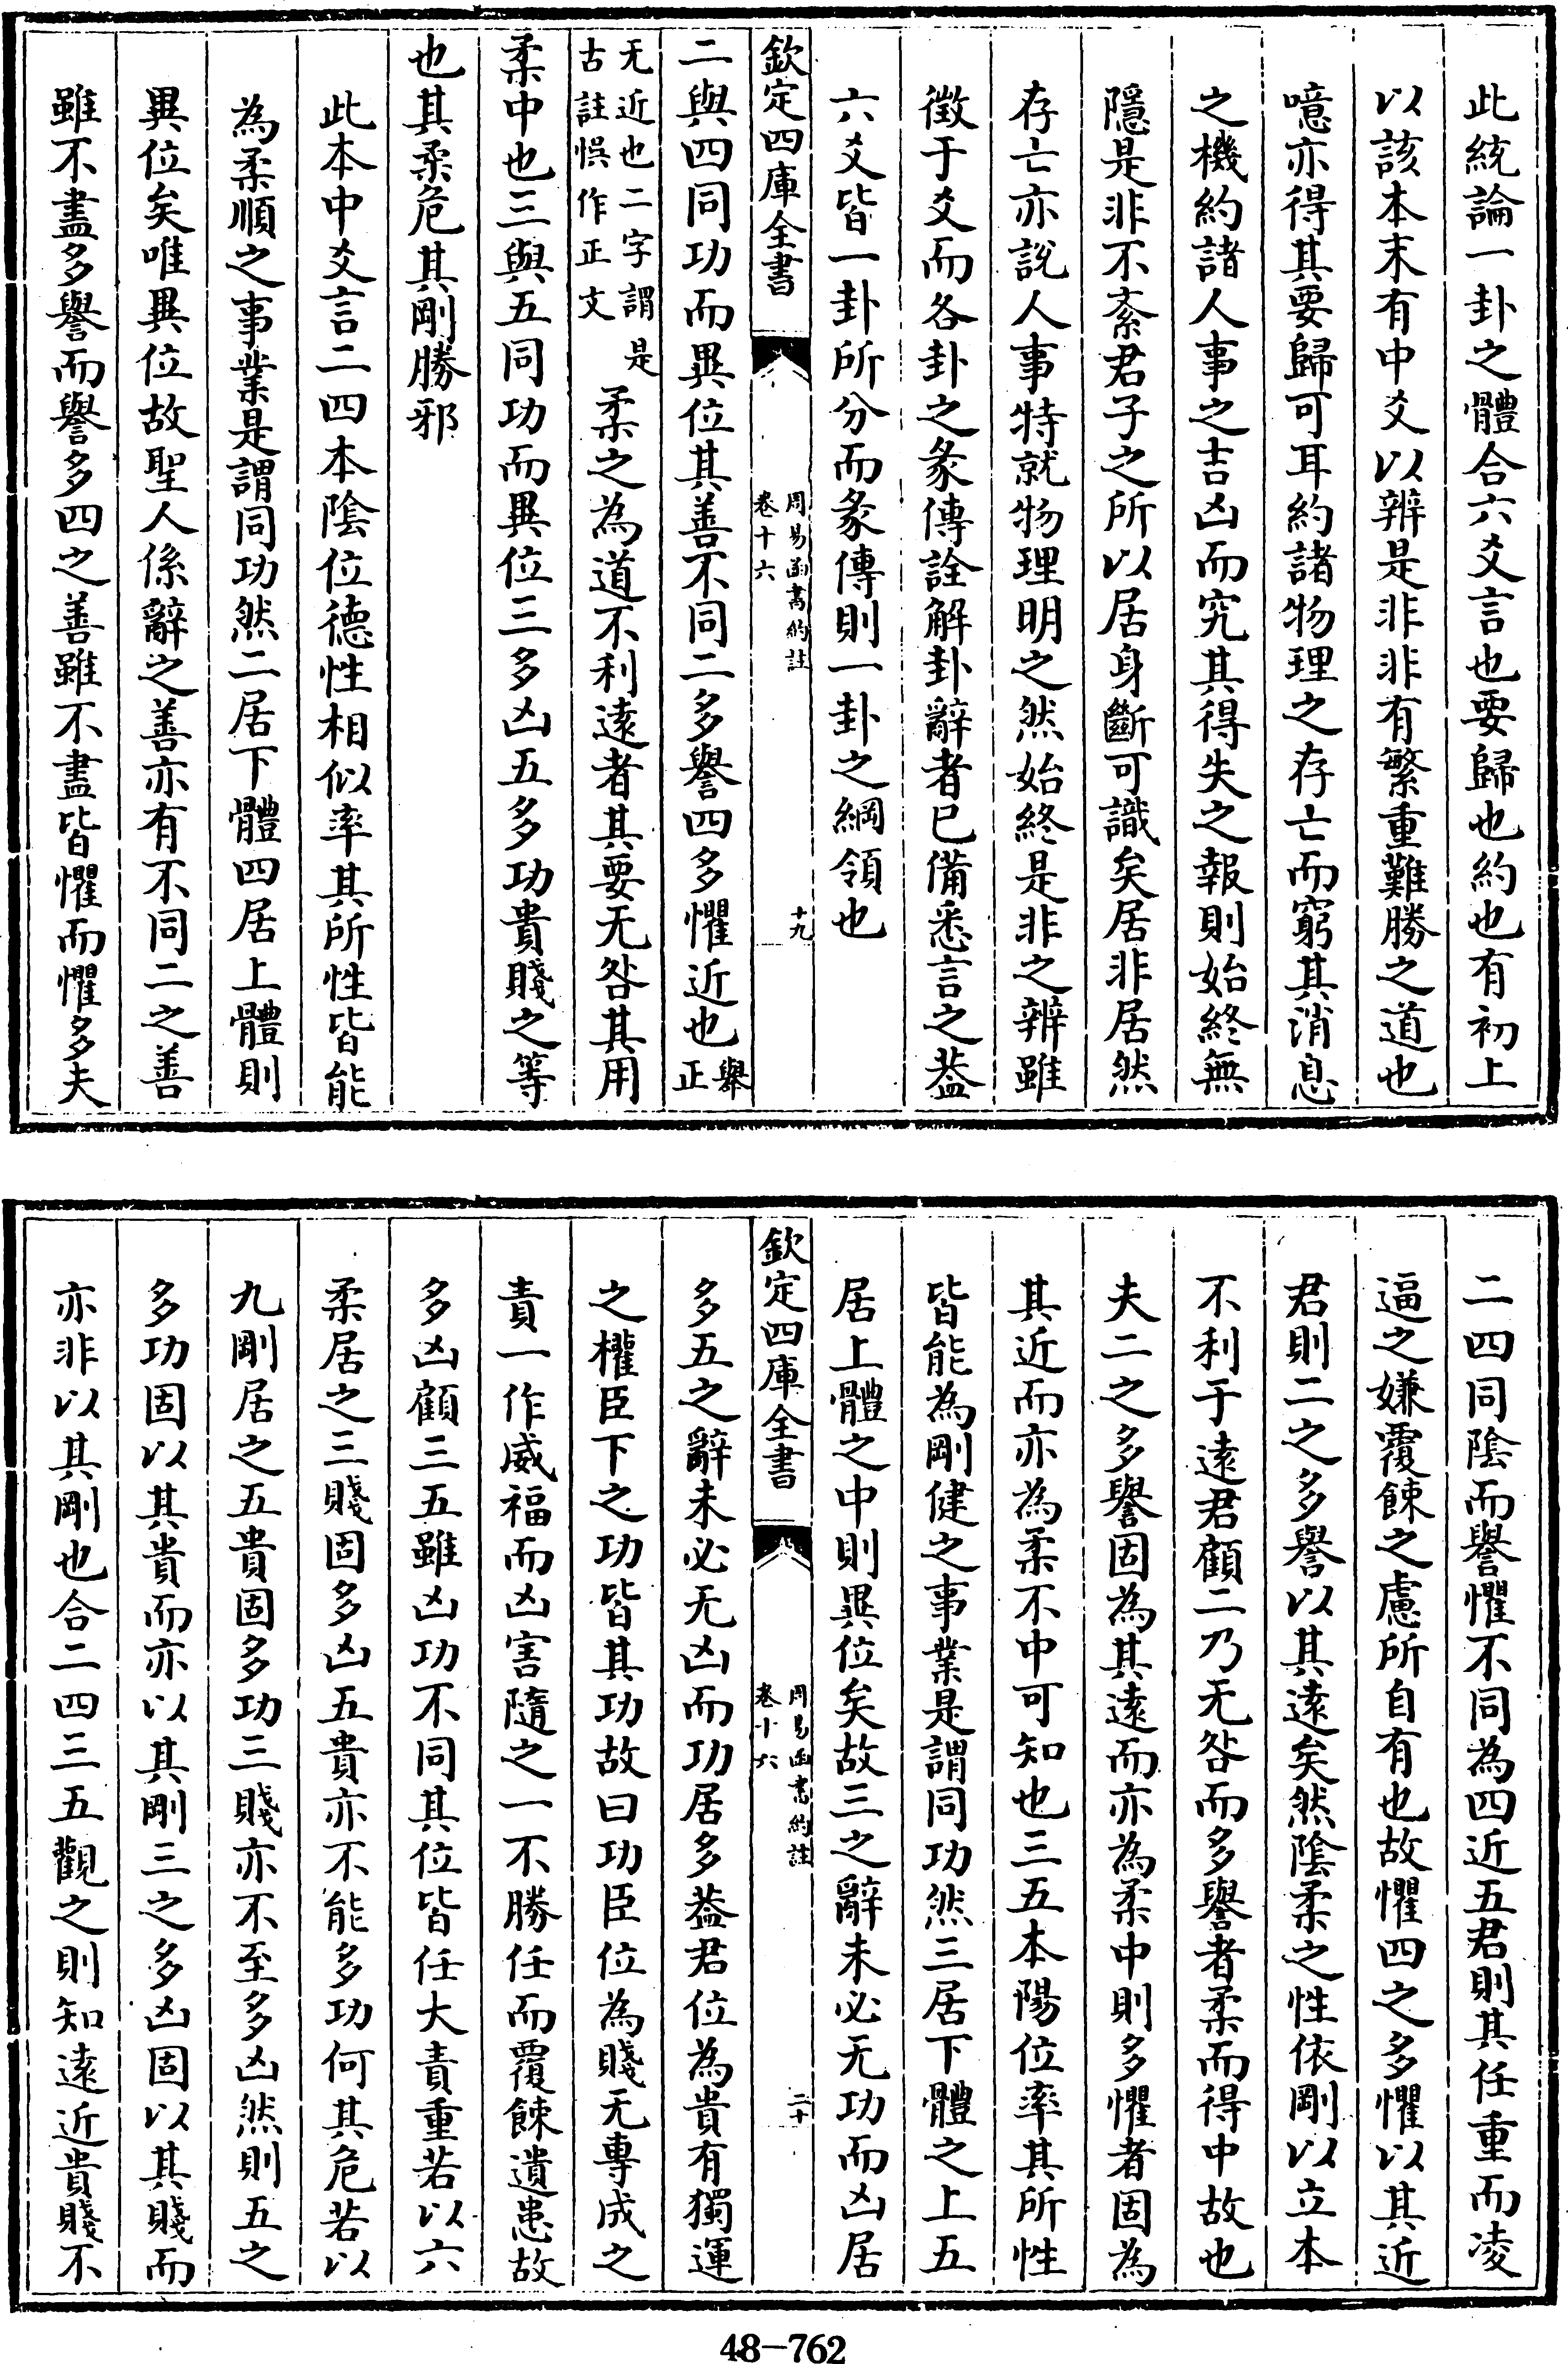 此統論一卦之體合六爻言也要歸也約也有初上
以該本末有中爻以辨是非非有繁重難勝之道也
噫亦得其要歸可耳約諸物理之存亡而窮其消息
之機約諸人事之吉凶而究其得失之報則始終無
隱是非不紊君子之所以居身斷可識矣居非居然
存亡亦說人事特就物理明之然始終是非之辨雖
徵于爻而各卦之彖傳詮解卦辭者已備悉言之葢
六爻皆一卦所分而彖傳則一卦之綱領也
欽定四庫全書
周易函書約註
卷十六
十九
二與四同功而異位其善不同二多譽四多懼近也舉正
无近也二字謂是
古註悞作正文
柔之為道不利遠者其要无咎其用
柔中也三與五同功而異位三多凶五多功貴賤之等
也其柔危其剛勝邪
此本中爻言二四本陰位德性相似率其所性皆能
為柔順之事業是謂同功然二居下體四居上體則
異位矣唯異位故聖人係辭之善亦有不同二之善
雖不盡多譽而譽多四之善雖不盡皆懼而懼多夫
二四同陰而譽懼不同為四近五君則其任重而凌
逼之嫌覆餗之慮所自有也故懼四之多懼以其近
君則二之多譽以其遠矣然陰柔之性依剛以立本
不利于遠君顧二乃无咎而多譽者柔而得中故也
夫二之多譽固為其遠而亦為柔中則多懼者固為
其近而亦為柔不中可知也三五本陽位率其所性
皆能為剛健之事業是謂同功然三居下體之上五
居上體之中則異位矣故三之辭未必无功而凶居
欽定四庫全書
周易函書約註
卷十六
二十
多五之辭未必无凶而功居多葢君位為貴有獨運
之權臣下之功皆其功故曰功臣位為賤无專成之
責一作威福而凶害隨之一不勝任而覆餗遺患故
多凶顧三五雖凶功不同其位皆任大責重若以六
柔居之三賤固多凶五貴亦不能多功何其危若以
九剛居之五貴固多功三賤亦不至多凶然則五之
多功固以其貴而亦以其剛三之多凶固以其賤而
亦非以其剛也合二四三五觀之則知遠近貴賤不
48-762